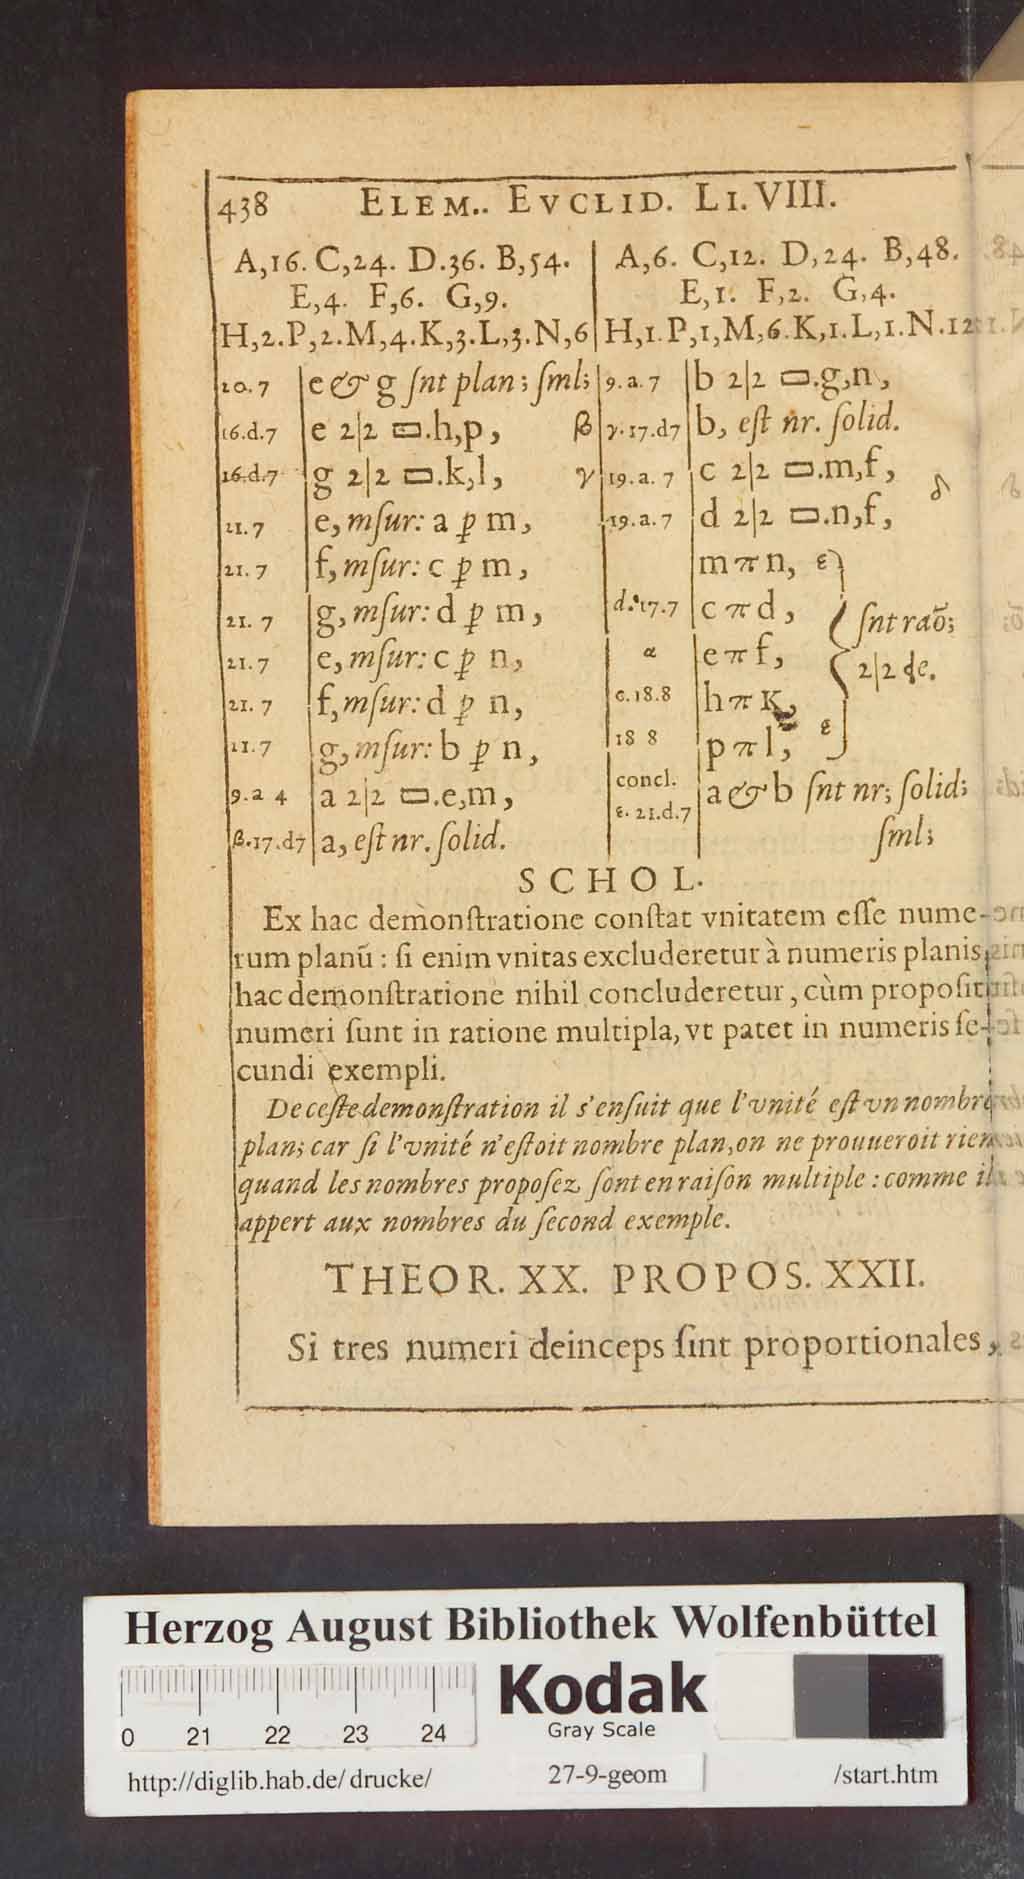 438 ELEM.. EVCLID. LI. VIII.
A,16. C,24. D.36. B,54.
E,4. F,6. G,9.
H,2.P,2.M,4.K,3.L,3.N,6
A,6. C,12. D,24. B,48.
E,1. F,2. G,4.
H,1.P,1,M,6.K,1.L,1.N.12
20.7 e & g ſnt plan; ſml;
16.d.7 e 2|2 ▭.h,p, β
16.d.7 g 2|2 ▭.k,l, γ
21.7 e, mſur: a ꝑ m,
21.7 f, mſur: c ꝑ m,
21.7 g, mſur: d ꝑ m,
21.7 e, mſur: c ꝑ n,
21.7 f, mſur: d ꝑ n,
21.7 g, mſur: b ꝑ n,
9.a 4 a 2|2 ▭.e,m,
β.17.d7 a, eſt nr. ſolid.
9.a.7 b 2|2 ▭.g,n,
γ.17.d7 b, eſt nr. ſolid.
19.a.7 c 2|2 ▭.m,f, δ
19.a.7 d 2|2 ▭.n,f,
m π n, ε
d.17.7 c π d, ſnt raõ;
α e π f, 2|2 de.
c.18.8 h π K,
18 8 p π l, ε
concl. a & b ſnt nr; ſolid;
ε. 21.d.7 ſml;
SCHOL.
Ex hac demonſtratione conſtat vnitatem eſſe nume-
rum planũ : ſi enim vnitas excluderetur à numeris planis,
hac demonſtratione nihil concluderetur, cùm propoſiti
numeri ſunt in ratione multipla, vt patet in numeris ſe-
cundi exempli.
De ceſte demonſtration il s'enſuit que l'vnité eſt vn nombre
plan; car ſi l'vnité n'eſtoit nombre plan, on ne prouueroit rien
quand les nombres propoſez ſont en raiſon multiple : comme il
appert aux nombres du ſecond exemple.
THEOR. XX. PROPOS. XXII.
Si tres numeri deinceps ſint proportionales,
Herzog August Bibliothek Wolfenbüttel
0 21 22 23 24
Kodak
Gray Scale
http://diglib.hab.de/drucke/ 27-9-geom /start.htm